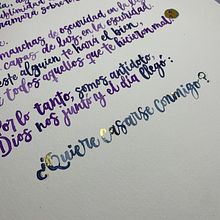 sublimidad
amara sobre m
manchas de oscuridad, en la luz
capas de luz, en la oscuridad.
este alguien te hará el bien,
de todos aquellos que te hicieron mal
Por lo tanto, somos antídoto,
Dios nos juntó y el día llegó:
¿Quiere casarse conmigo?